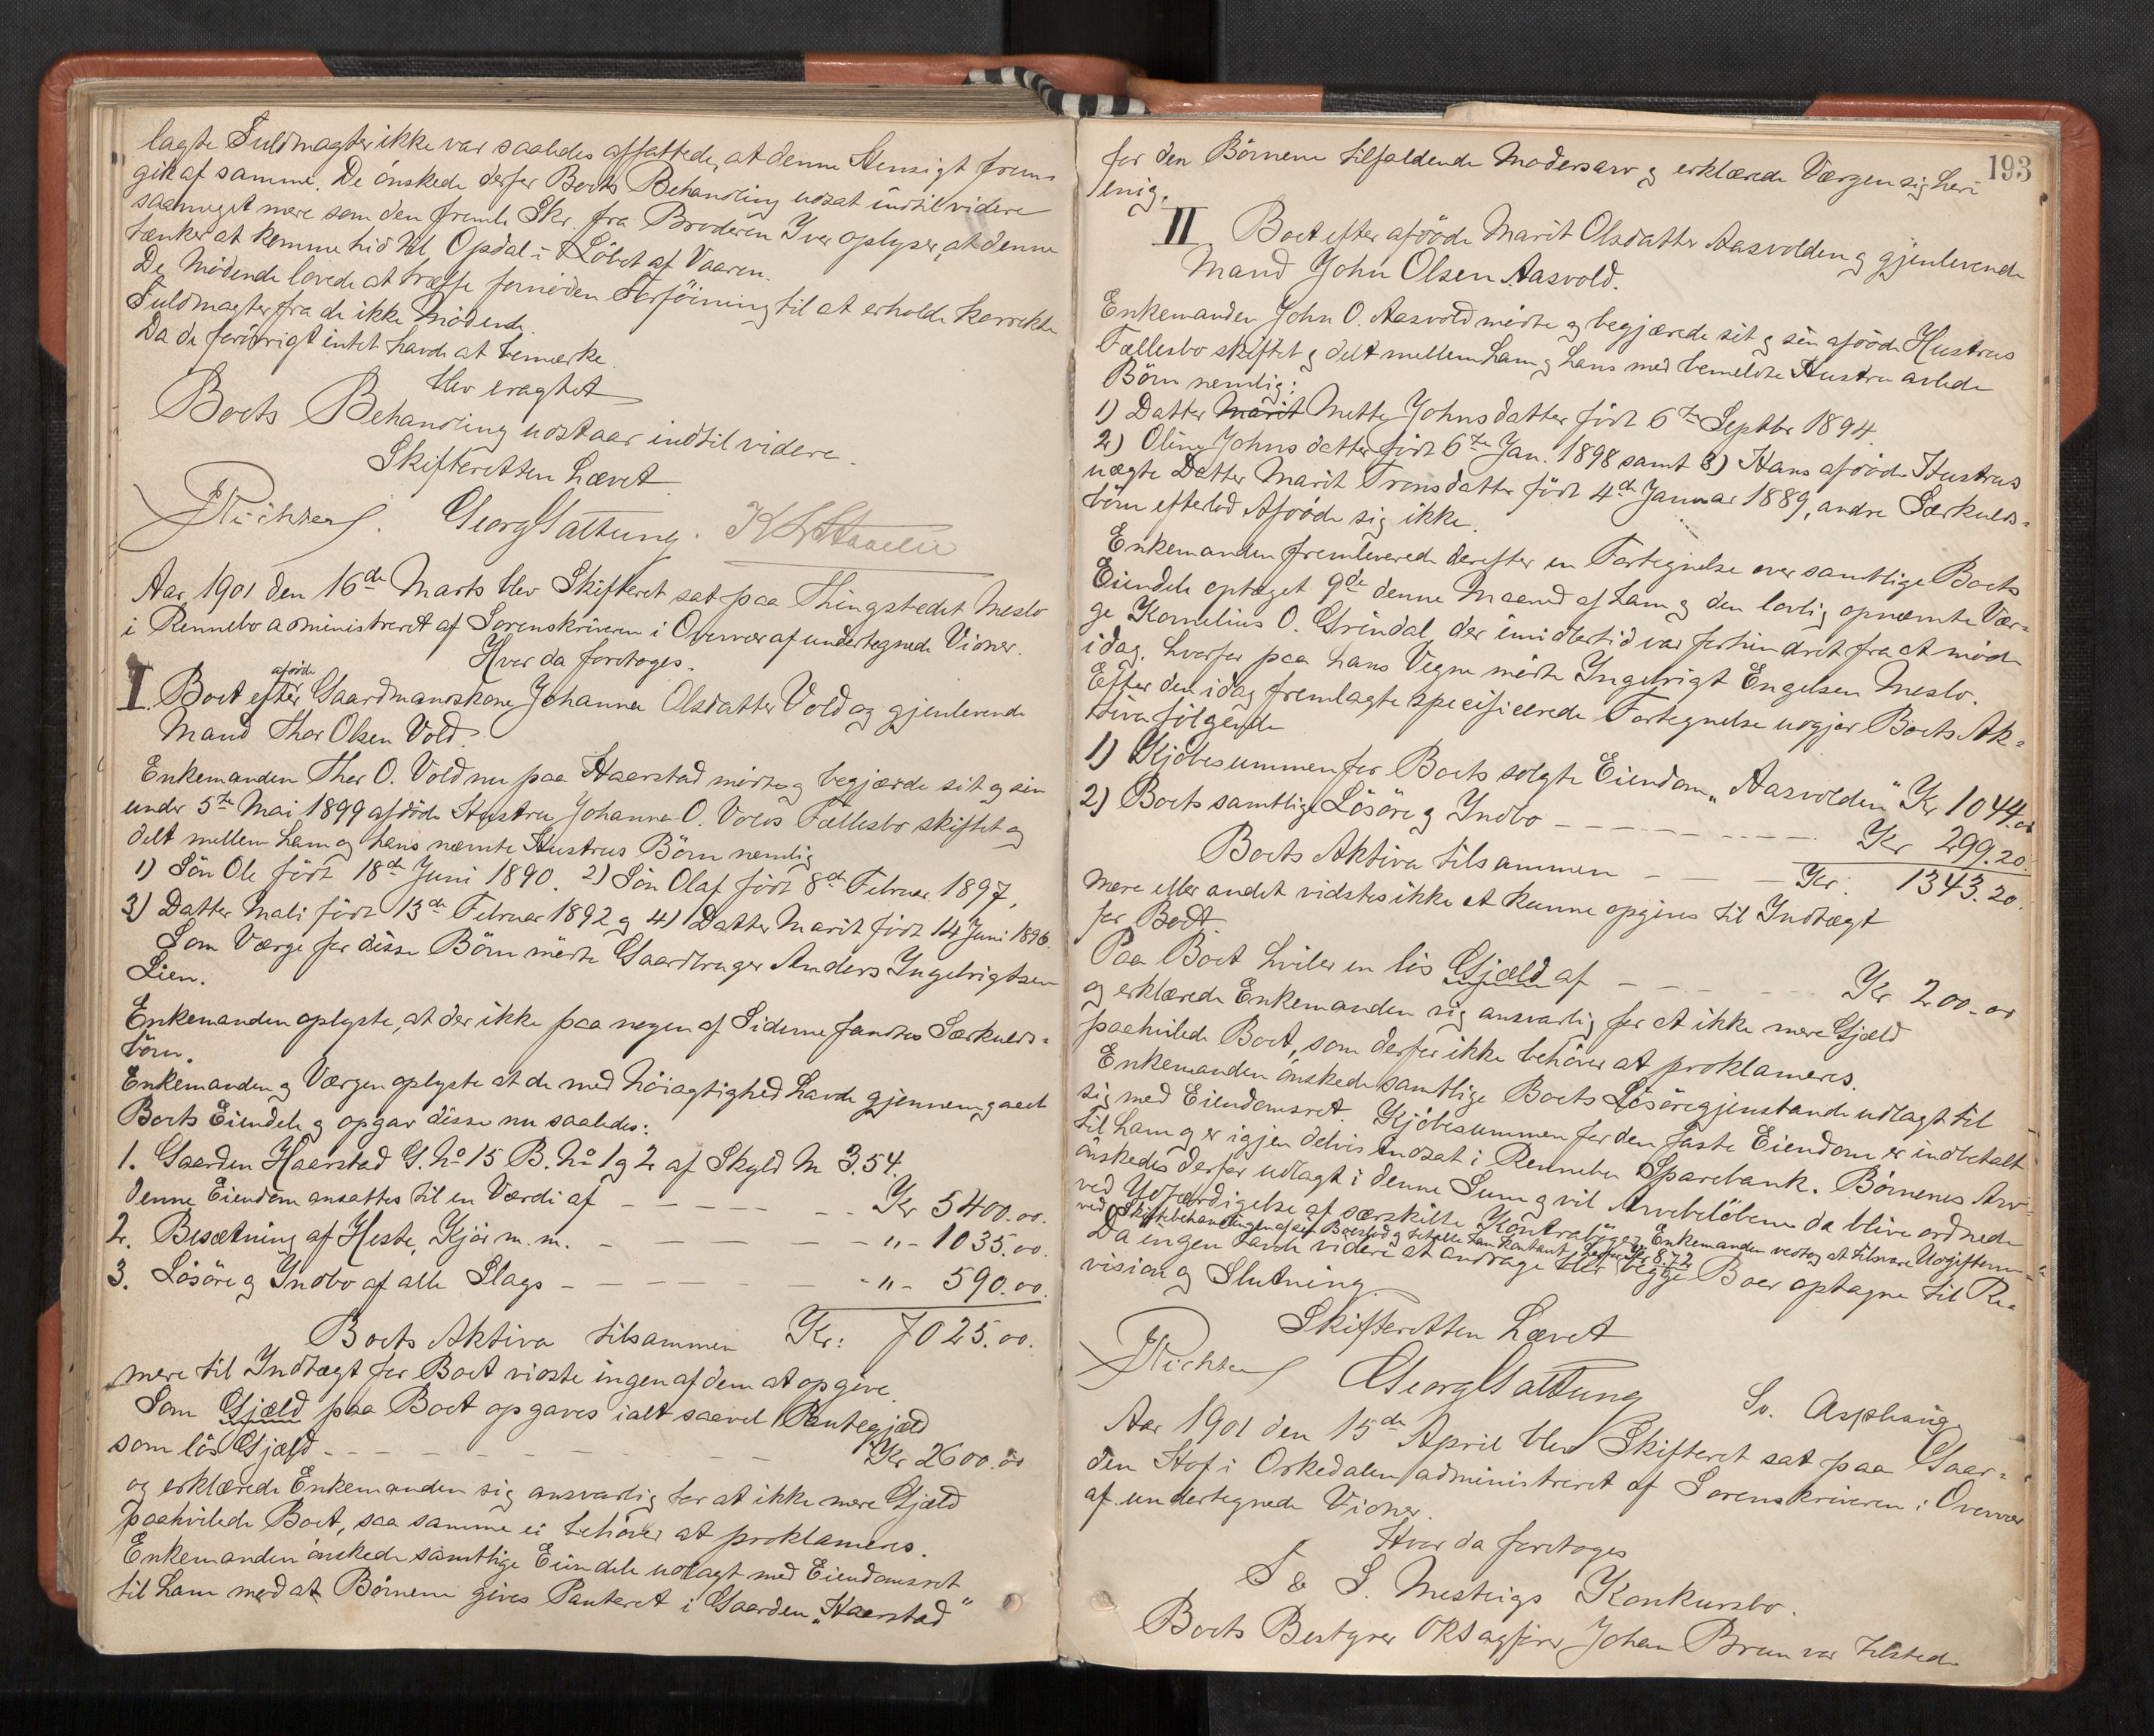 lagte Fuldmagter ikke var saaledes affattede, at denne Hensigt frem-
gik af samme. De önskede derfor Boets Behandling udsat indtil videre
saameget mere som den freml. Skr. fra Broderen Iver oplyser, at denne
tænker at komme hid til Opdal i Löbet af Vaaren.
De Mödende lovede at træffe fornöden Forföining til at erholde korrekte
Fuldmagter fra de ikke Mödende.
Da de forövrigt intet havde at bemærke
blev eragtet
Boets Behandling udstaar indtil videre.
Skifteretten hævet
Richter. Georg Sattung.
Aar 1901 den 16de Marts blev Skifteret sat paa Thingstedet Meslo
i Rennebo administreret af Sorenskriveren i Overvær af undertegnede Vidner.
Hvor da foretoges.
I. Boet efter afdöde Gaardmandskone Johanna Olsdatter Vold og gjenlevende
Mand Thor Olsen Vold.
Enkemanden Thor O. Vold nu paa Haarstad mödte og begjærede sit og sin
under 5te Mai 1899 afdöde Hustru Johanna O. Volds Fællesbo skiftet og
delt mellem ham og hans nævnte Hustrus Börn nemlig
1) Sön Ole födt 18de Juni 1890. 2) Sön Olaf födt 8de Februar 1897,
3) Datter Mali födt 13de Februar 1892 og 4) Datter Marit födt 14 Juni 1896.
Som Værge for disse Börn mödte Gaardbruger Anders Ingebrigtsen
Lien.
Enkemanden oplyste, at der ikke paa nogen af Siderne fandtes Særkulds-
börn.
Enkemanden og Værgen oplyste at de med Nöiagtighed havde gjennemgaaet
Boets Eiendele og opgav disse nu saaledes:
1. Gaarden Haarstad G. No 15 B. No 1 og 2 af Skyld M 3.54.
Denne Eiendom ansattes til en Værdi af - - - - Kr 5400.00.
2. Besætning af Heste, Kjör m. m. - - - - „ - 1035.00.
3. Lösöre og Indbo af alle Slags - - - - „ - 590.00.
Boets Aktiva tilsammen Kr: 7025.00.
mere til Indtægt for Boet vidste ingen af dem at opgive.
Som Gjæld paa Boet opgaves ialt saavel Pantegjæld
som lös Gjæld - - - - - - Kr 2600.00
og erklærede Enkemanden sig ansvarlig for at ikke mere Gjæld
paahvilede Boet, saa samme ei behöver at proklameres.
Enkemanden önskede samtlige Eiendele udlagt med Eiendomsret
til ham mod at Börnene gives Panteret i Gaarden „Haarstad"
193
for den Börnene tilfaldende Mödrearv og erklærede Værgen sig heri
enig.
II Boet efter afdöde Marit Olsdatter Aasvolden og gjenlevende
Mand John Olsen Aasvold.
Enkemanden John O. Aasvold mödte og begjærede sit og sin afdöde Hustrus
Fællesbo skiftet og delt mellem ham og hans med bemeldte Hustru avlede
Börn nemlig:
1) Datter Marit Mette Johnsdatter födt 6te Septbr 1894.
2) Oline Johnsdatter födt 6te Jan. 1898 samt 3) Hans afdöde Hustrus
uægte Datter Marit Tronsdatter födt 4de Januar 1889, andre Særkulds-
börn efterlod Afdöde sig ikke.
Enkemanden fremleverede derefter en Fortegnelse over samtlige Boets
Eiendele optaget 9de denne Maaned af ham og den lovlig opnævnte Vær-
ge Kornelius O. Grindal, der imidlertid var forhindret fra at möde
idag, hvorfor paa hans Vegne mödte Ingebrigt Engelsen Meslo.
Efter den idag fremlagte specificerede Fortegnelse udgjör Boets Ak-
tiva fölgende
1) Kjöbesummen for Boets solgte Eiendom „Aasvolden" Kr 1044.00
2) Boets samtlige Lösöre og Indbo - - - - - Kr 299.20.
Boets Aktiva tilsammen - - - Kr. 1343.20.
mere eller andet vidstes ikke at kunne opgives til Indtægt
for Boet.
Paa Boet hviler en lös Gjæld af - - - - Kr 200.00
og erklærede Enkemanden sig ansvarlig for at ikke mere Gjæld
paahvilede Boet, som derfor ikke behöver at proklameres.
Enkemanden önskede samtlige Boets Lösöregjenstande udlagt til
sig med Eiendomsret. Kjöbesummen for den faste Eiendom er indbetalt
til ham og er igjen delvis indsat i Rennebu Sparebank. Börnenes Arv
önskedes derfor udlagt i denne Sum og vil Arvebelöbene da blive ordnede
ved Udfærdigelse af særskilte Kontrabög og Enkemanden vedtog at tilsvare Udgifterne
ved Skiftebehandlingen af sin Boeslod og
Da ingen havde videre at andrage blev begge Boer optagne til Re-
vision og Slutning.
Skifteretten hævet
Richter Georg Sattung Sv. Asphaug
Aar 1901 den 15de April blev Skifteret sat paa Gaar-
den Hof i Orkedalen administreret af Sorenskriveren i Overvær
af undertegnede Vidner.
Hvor da foretoges
Konkursbo.
Boets Bestyrer ORSagförer Johan Brun var tilstede